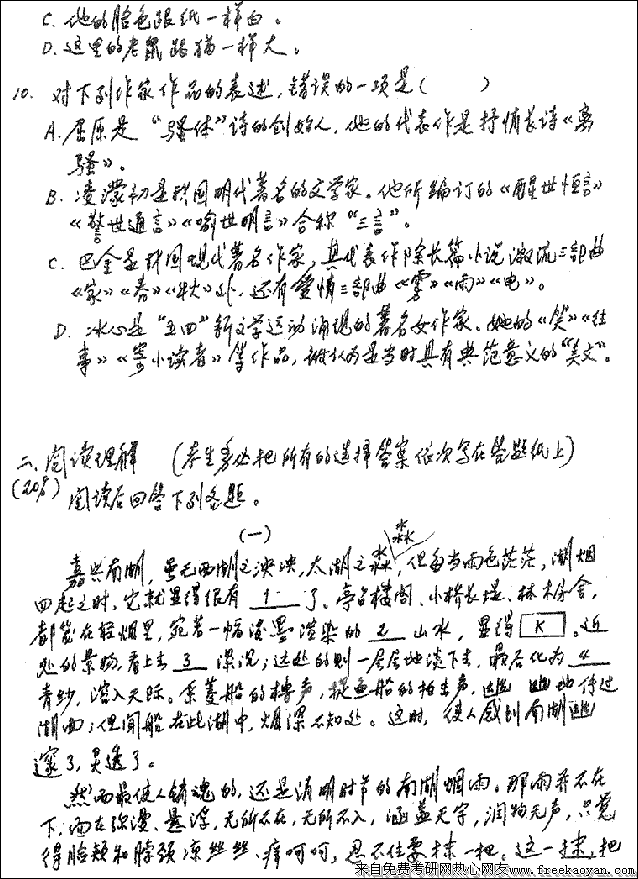 C. 他的脸色跟纸一样白。
D. 这里的老鼠跟猫一样大。
10. 对下列作家作品的表述,错误的一项是( )
A. 屈原是“骚体”诗的创始人,他的代表作是抒情长诗《离
骚》。
B. 凌濛初是我国明代著名的文学家。他所编订的《醒世恒言》
《警世通言》《喻世明言》合称“三言”。
C. 巴金是我国现代著名作家,其代表作除长篇小说激流三部曲
《家》《春》《秋》外,还有爱情三部曲《雾》《雨》《电》。
D. 冰心是“五四”新文学运动涌现的著名女作家。她的《笑》《往
事》《寄小读者》等作品,被认为是当时具有典范意义的“美文”。
二. 阅读理解 (考生务必把所有的选择答案依次写在答题纸上)
(20分) 阅读后回答下列各题。
(一)
嘉兴南湖,虽无西湖之泱泱,太湖之淼淼,但每当雨色茫茫,湖烟
四起之时,它就显得很有 1 了。亭台楼阁、小桥长堤、林木屋舍,
都笼在轻烟里,宛若一幅淡墨渲染的 2 山水,显得 K 。近
处的景物,看上去 3 深沉;远处的则一层层地淡下去,最后化为 4
青纱,溶入天际。采菱船的橹声,捉鱼船的拍生声,幽幽地传过
湖面;但闻船在此湖中,烟深不知处。这时,使人感到南湖幽
邃了,灵透了。
然而最使人销魂的,还是清明时节的南湖烟雨。那雨并不在
下,而在弥漫、悬浮,无所不在,无所不入,涵盖天宇,润物无声,只觉
得脸颊和脖颈凉丝丝、痒呵呵,忍不住要抹一把。这一抹,把
来自免费考研网热心网友,www.freekaoyan.com